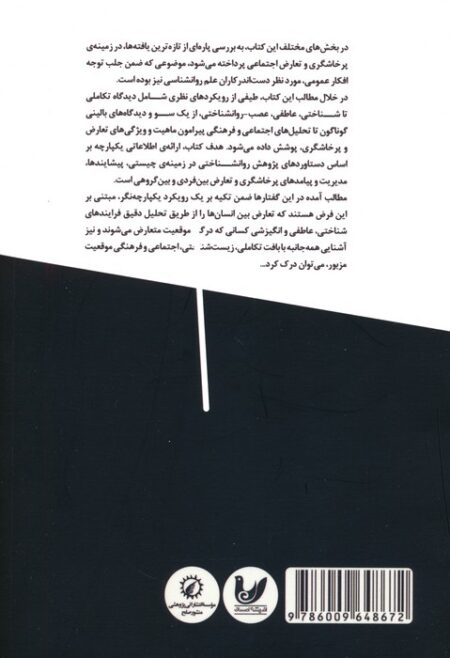 در بخش‌های مختلف این کتاب، به بررسی پاره‌ای از تازه‌ترین یافته‌ها، در زمینه‌ی
پرخاشگری و تعارض اجتماعی پرداخته می‌شود، موضوعی که ضمن جلب توجه
افکار عمومی، مورد نظر دست‌اندرکاران علم روانشناسی نیز بوده است.
در خلال مطالب این کتاب، طیفی از رویکردهای نظری شامل دیدگاه تکاملی
تا شناختی، عاطفی، عصب-روانشناختی، از یک سو و دیدگاه‌های بالینی
گوناگون تا تحلیل‌های اجتماعی و فرهنگی پیرامون ماهیت و ویژگی‌های تعارض
و پرخاشگری، پوشش داده می‌شود. هدف کتاب، ارائه‌ی اطلاعاتی یکپارچه بر
اساس دستاوردهای پژوهش روانشناختی در زمینه‌ی چیستی، پیشایندها،
مدیریت و پیامدهای پرخاشگری و تعارض بین‌فردی و بین‌گروهی است.
مطالب آمده در این گفتارها ضمن تکیه بر یک رویکرد یکپارچه‌نگر، مبتنی بر
این فرض هستند که تعارض بین انسان‌ها را از طریق تحلیل دقیق فرایندهای
شناختی، عاطفی و انگیزشی کسانی که درگیر موقعیت متعارض می‌شوند و نیز
آشنایی همه‌جانبه با بافت تکاملی، زیست‌شناختی، اجتماعی و فرهنگی موقعیت
مزبور، می‌توان درک کرد...
مؤسسه انتشاراتی پژوهشی
منشور صلح
اندیشه احسان
9 786009 648672